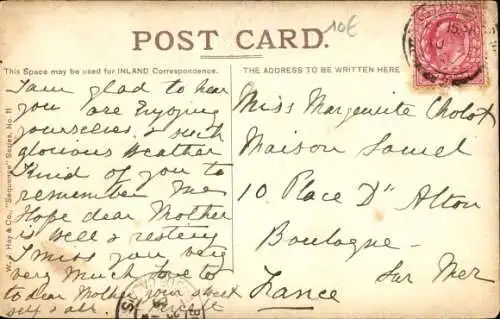 10€
POST CARD.
This Space may be used for INLAND Correspondence.
THE ADDRESS TO BE WRITTEN HERE
W. J. Hay & Co., "Sequence" Series, No. 11
I am glad to hear
you are Enjoying
yourselves & such
glorious weather
Kind of you to
remember me
Hope dear Mother
is well & resting
I miss you very
very much love to
to dear Mother your sweet
self & all
Miss Marguerite Cholot
Maison Samel
10, Place D" Alton
Boulogne
Sur Mer
France